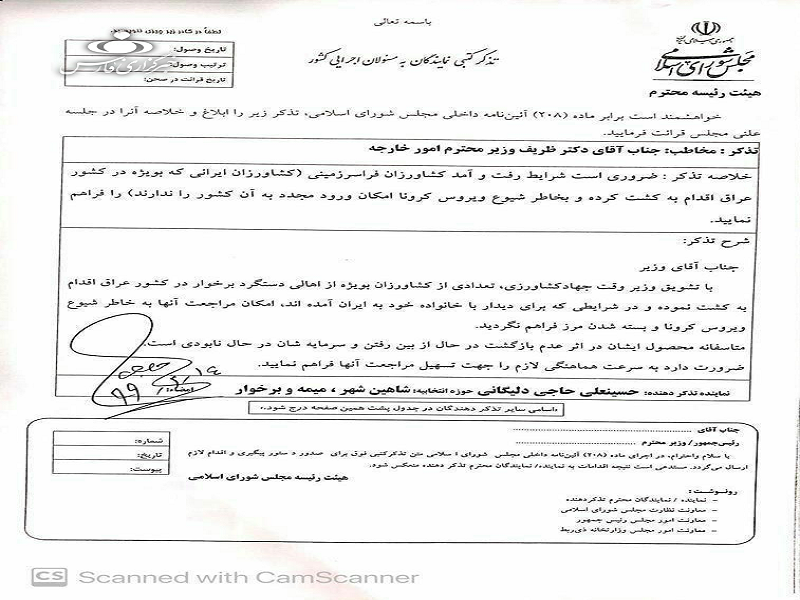 باسمه تعالی
جمهوری اسلامی ایران
مجلس شورای اسلامی
تذکر کتبی نمایندگان به مسئولان اجرایی کشور
لطفاً در کادر زیر چیزی ننویسید.
تاریخ وصول:
ترتیب وصول:
تاریخ قرائت در صحن:
خبرگزاری فارس
هیئت رئیسه محترم
خواهشمند است برابر ماده (۲۰۸) آئین‌نامه داخلی مجلس شورای اسلامی، تذکر زیر را ابلاغ و خلاصه آنرا در جلسه
علنی مجلس قرائت فرمایید.
تذکر : مخاطب: جناب آقای دکتر ظریف وزیر محترم امور خارجه
خلاصه تذکر : ضروری است شرایط رفت و آمد کشاورزان فراسرزمینی (کشاورزان ایرانی که بویژه در کشور
عراق اقدام به کشت کرده و بخاطر شیوع ویروس کرونا امکان ورود مجدد به آن کشور را ندارند) را فراهم
نمایید.
شرح تذکر:
جناب آقای وزیر
با تشویق وزیر وقت جهادکشاورزی، تعدادی از کشاورزان بویژه از اهالی دستگرد برخوار در کشور عراق اقدام
به کشت نموده و در شرایطی که برای دیدار با خانواده خود به ایران آمده اند، امکان مراجعت آنها به خاطر شیوع
ویروس کرونا و بسته شدن مرز فراهم نگردید.
متاسفانه محصول ایشان در اثر عدم بازگشت در حال از بین رفتن و سرمایه شان در حال نابودی است.
ضرورت دارد به سرعت هماهنگی لازم را جهت تسهیل مراجعت آنها فراهم نمایید.
نماینده تذکر دهنده: حسینعلی حاجی دلیگانی حوزه انتخابیه: شاهین شهر ، میمه و برخوار
امضاء:
،اسامی سایر تذکر دهندگان در جدول پشت همین صفحه درج شود.،
جناب آقای ....................
رئیس‌جمهور/ وزیر محترم ....................
با سلام واحترام، در اجرای ماده (۲۰۸) آئین‌نامه داخلی مجلس شورای اسلامی متن تذکرکتبی فوق برای صدور دستور پیگیری و اقدام لازم
ارسال می‌گردد. مستدعی است نتیجه اقدامات به نماینده/ نمایندگان محترم تذکر دهنده منعکس شود.
هیئت رئیسه مجلس شورای اسلامی
شماره:
تاریخ:
پیوست:
رونوشت:
- نماینده / نمایندگان محترم تذکردهنده
- معاونت نظارت مجلس شورای اسلامی
- معاونت امور مجلس رئیس جمهور
- معاونت امور مجلس وزارتخانه ذی‌ربط
CS Scanned with CamScanner